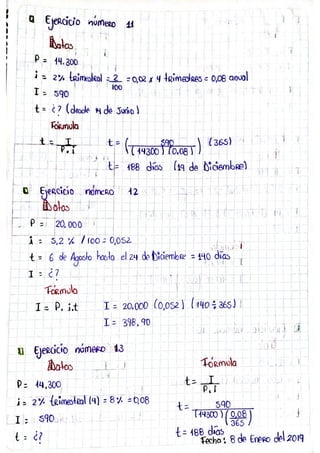 Ejercicio número 11
Datos
P = 14.300
i = 2% trimestral = 2/100 = 0,02 x 4 trimestres = 0,08 anual
I = 590
t = ¿? (desde 14 de Junio)
Fórmula
t = I / P.i t = ( 590 / (14300)(0.08) ) (365)
t = 188 días (19 de Diciembre)
Ejercicio número 12
Datos
P = 20.000
i = 5,2 % /100 = 0,052
t = 6 de Agosto hasta el 24 de Diciembre = 140 días
I = ¿?
Fórmula
I = P. i.t I = 20.000 (0,052) (140 ÷ 365)
I = 398.90
Ejercicio número 13
Datos Fórmula
P = 14,300 t = I / P.i
i = 2% trimestral (4) = 8% = 0,08
I = 590 t = 590 / (14300) (0,08/365)
t = ¿? t = 188 días
Fecho : 8 de Enero del 2019